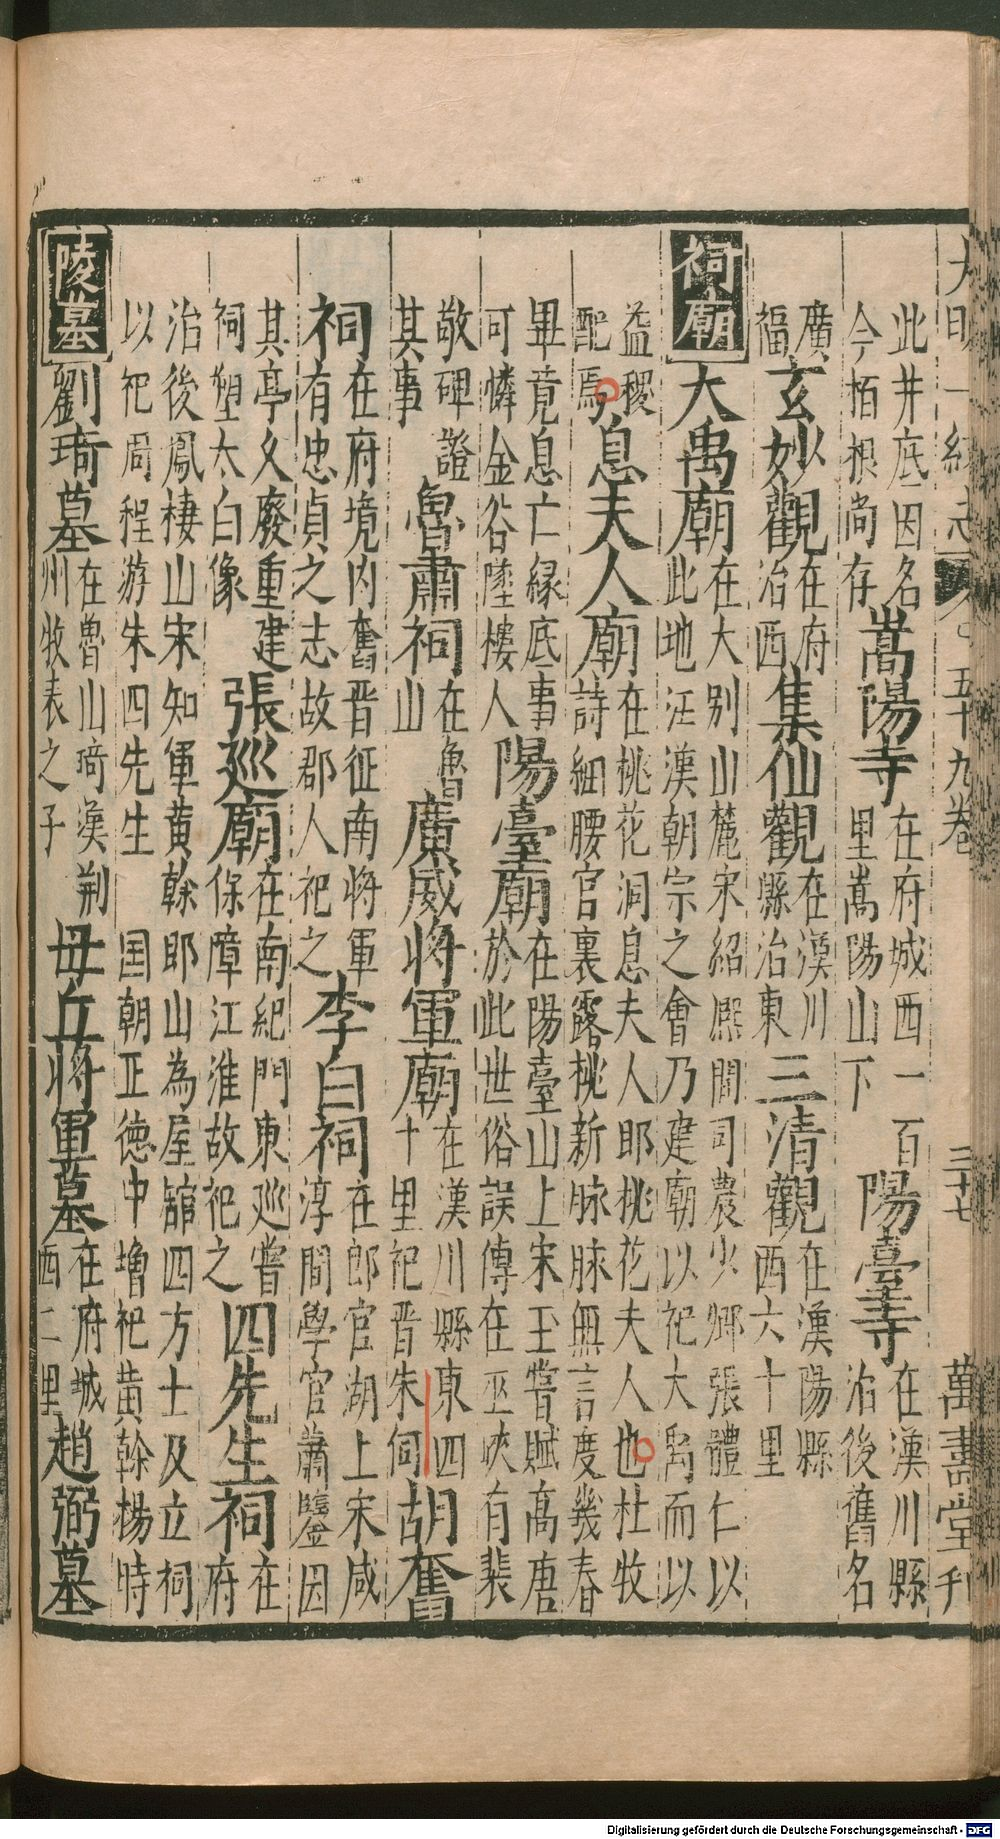 大明一統志 五十九卷 三十七 萬壽堂刊
此井底因名
今栢根尚存
嵩陽寺
在府城西一百
里嵩陽山下
陽臺寺
在漢川縣
治後舊名
廣
福
玄妙觀
在府
治西
集仙觀
在漢川
縣治東
三清觀
在漢陽縣
西六十里
祠廟
大禹廟
在大别山麓宋紹熈間司農少卿張體仁以
此地江漢朝宗之會乃建廟以祀大禹而以
益稷
配焉
息夫人廟
在桃花洞息夫人耶桃花夫人也杜牧
詩細腰宫裏露桃新脉脉無言度幾春
畢竟息亡縁底事
可憐金谷墜樓人
陽臺廟
在陽臺山上宋玉嘗賦高唐
於此世俗誤傳在巫峽有裴
敬碑證
其事
魯肅祠
在魯
山
廣威将軍廟
在漢川縣東四
十里祀晋朱伺
胡奮
祠
在府境内奮晋征南将軍
有忠貞之志故郡人祀之
李白祠
在郎官湖上宋咸
淳間學官蕭鑒因
其亭久廢重建
祠塑太白像
張巡廟
在南紀門東巡嘗
保障江淮故祀之
四先生祠
在
府
治後鳳棲山宋知軍黄榦耶山為屋舘四方士及立祠
以祀周程游朱四先生 国朝正德中増祀黄榦楊時
陵墓
劉琦墓
在魯山琦漢荆
州牧表之子
毋丘将軍墓
在府城
西二里
趙弼墓
Digitalisierung gefördert durch die Deutsche Forschungsgemeinschaft - DFG